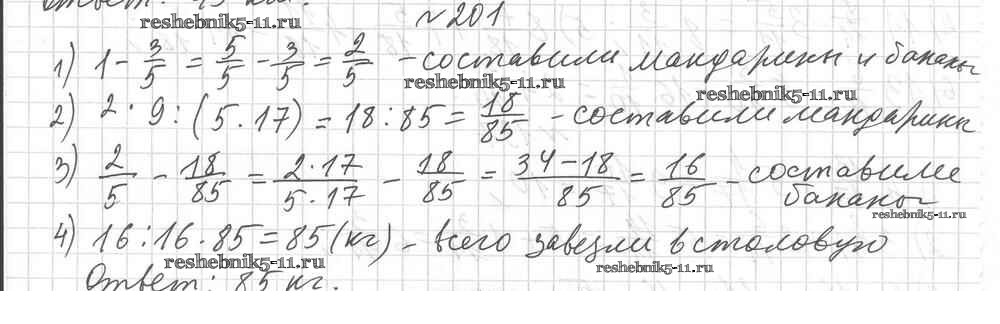 Ответ: 45 км.
reshebnik5-11.ru
№201
1) 1 - 3/5 = 5/5 - 3/5 = 2/5 - составили мандарины и бананы
reshebnik5-11.ru
reshebnik5-11.ru
2) 2 · 9 : (5 · 17) = 18 : 85 = 18/85 - составили мандарины
3) 2/5 - 18/85 = 2·17/5·17 - 18/85 = 34-18/85 = 16/85 - составили бананы
reshebnik5-11.ru
4) 16 : 16 · 85 = 85 (кг) - всего завезли в столовую
reshebnik5-11.ru
reshebnik5-11.ru
Ответ: 85 кг.